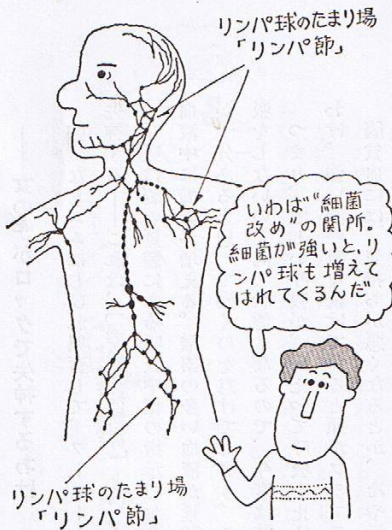 リンパ球のたまり場
「リンパ節」
いわば“細菌
改め”の関所。
細菌が強いと、リ
ンパ球も増えて
はれてくるんだ
リンパ球のたまり場
「リンパ節」